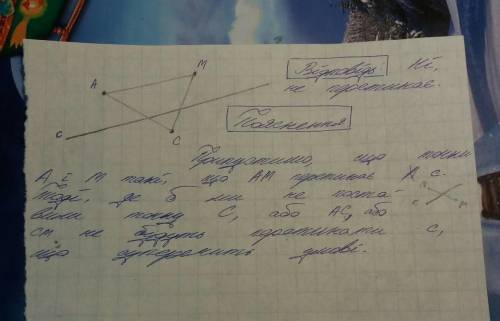 М
А
Відповідь: Ні,
не протинає.
с
С
Пояснення
Припустимо, що точки
А і М такі, що АМ протинає с.
Тоді, де б ми не поста-
вили точку С, або АС, або
СМ не будуть протинати с,
що суперечить умові.